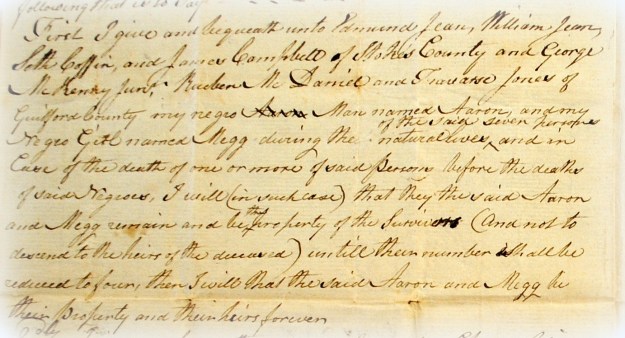 following that is to say
First I give and bequeath unto Edmund Jean, William Jean,
Seth Coffin, and James Campbell of Stokes County and George
McKenry Junr, Rueben McDaniel and Travase Jones of
Guilford County my negro Aaron Man named Aaron, and my
of the said seven persons
Negro Girl named Megg during the natural lives, and in
Case of the death of one or more of said persons before the deaths
of said Negroes, I will (in such case) that they the said Aaron
and Megg remain and be the property of the Survivors (and not to
descend to the heirs of the deceased) untill their number shall be
reduced to four, then I will that the said Aaron and Megg be
their Property and their heirs forever